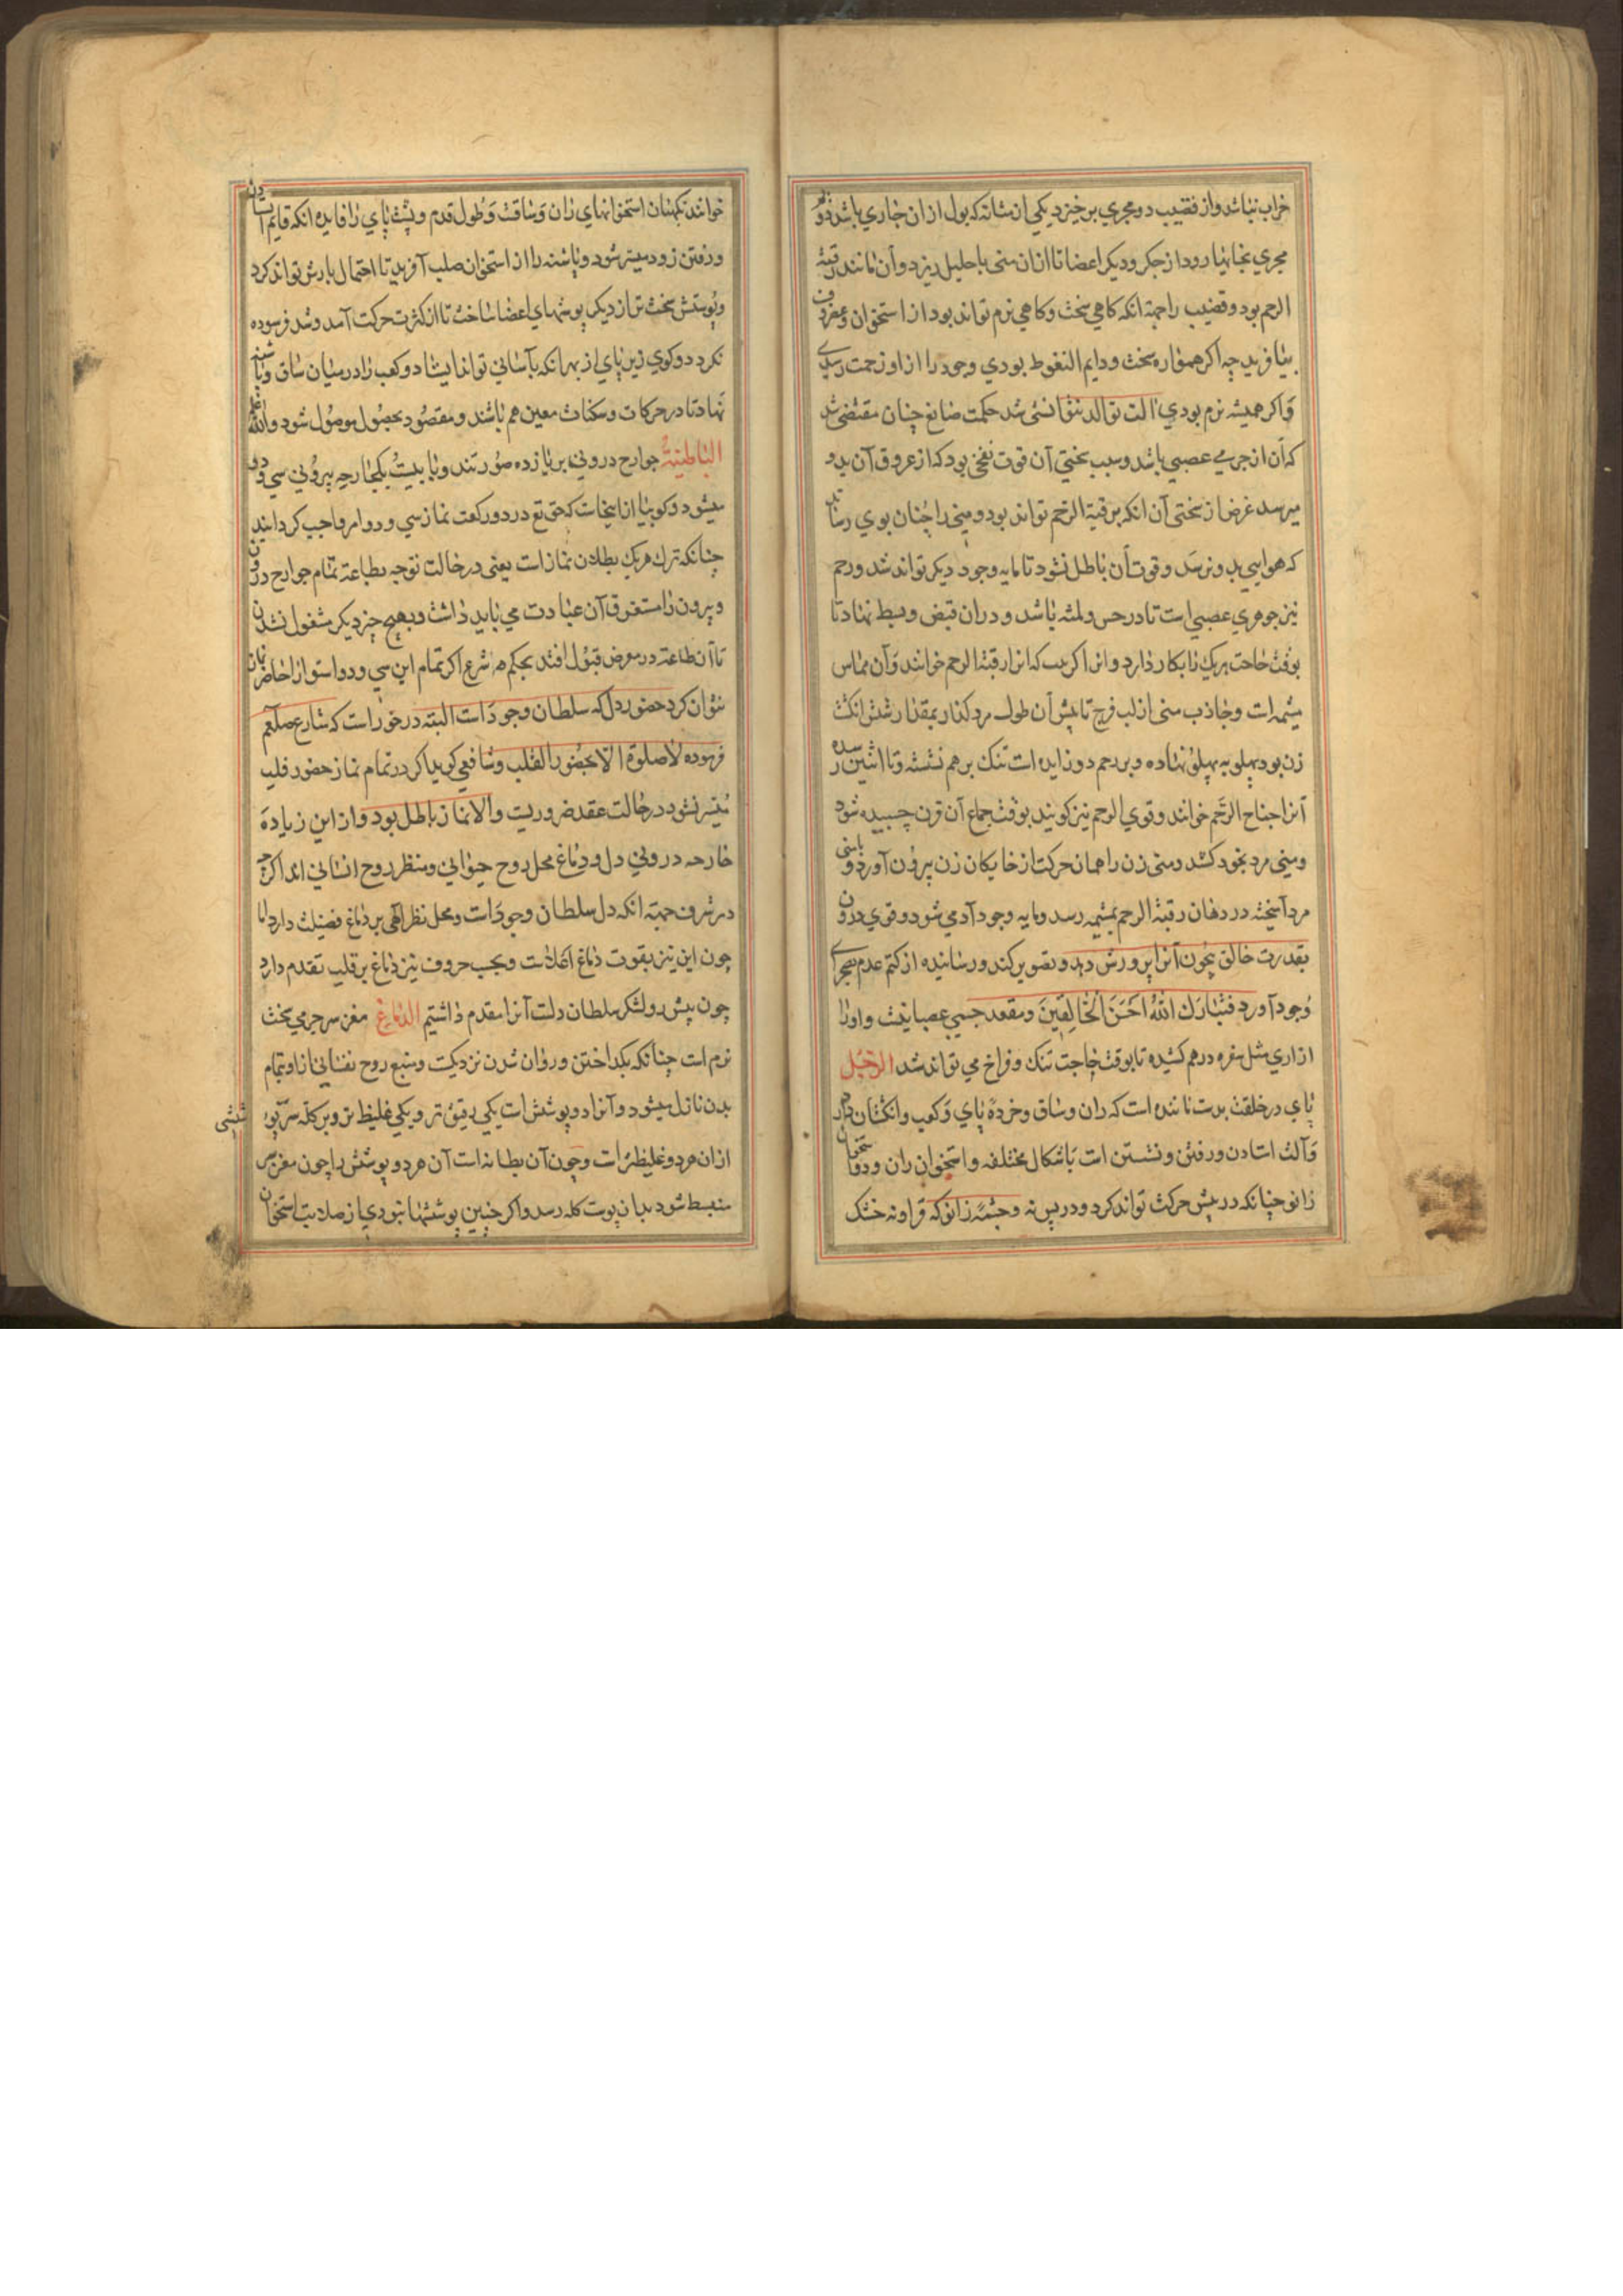 خراب نباشد و از قضیب دو مجری برخیزد یکی از مثانه که بول از ان جاری باشد دوم
مجری بخانها رود از جکر و دیکر اعضا تا از ان منی باحلیل ریزد و آن مانند رقبة
الرحم بود و قضیب را جهة انکه کاهی سخت و کاهی نرم تواند بود از استخوان و غضروف
نیافرید چه اکر همواره سخت و دایم النعوظ بودی وجود را از او زحمت رسیدی
و اکر همیشه نرم بودی آلت توالد نتوانستی شد حکمت صانع چنان مقتضی شد
که آن از جرمی عصبی باشد و سبب سختی آن قوت نفخی بود که از عروق آن بدو
میرسد غرض از سختی آن انکه برقبة الرحم تواند بود و منی را چنان بوی رساند
که هوایی بدو نرسد و قوت آن باطل نشود تا مایه وجود دیکر تواند شد و رحم
نیز جوهری عصبی است تا در حس و لمسه باشد و در ان قبض و بسط نهاد تا
بوقت حاجت هریک را بکار دارد و انرا که انرا رقبة الرحم خوانند و آن مماس
مشیمه است و جاذب منی از لب فرج تا پیش آن طول مرد کنار بمقدار شش انکشت
زن بود پهلو به پهلو نهاده و بر رحم دو زایده است تنک بر هم نشسته و تا انثیین رسیده
آنرا جناح الرحم خوانند و قوی الرحم نیز کویند بوقت جماع آن قرن چسبیده شود
و منی مرد بخود کشد و منی زن را همان حرکت از خایکان زن بیرون آورد و با منی
مرد آمیخته در دهان رقبة الرحم بمشیمه رسد و مایه وجود آدمی شود و قوی درون
بقدرت خالق بیچون آنرا پرورش دهد و تصویر کند و رسانیده از کتم عدم بصحرای
وجود آورد فتبارك الله احسن الخالقین و مقعد جسمی عصبانیست و اورا
ازاری مثل سفره درهم کشیده تا بوقت حاجت تنک و فراخ می تواند شد الرجل
پای در خلقت بدست ماننده است که ران و ساق و خرده پای و کعب و انکشتان دارد
و آلت استادن و رفتن و نشستن است باشکال مختلفه و استخوان ران و دو استخوان
زانو چنانکه در پیش حرکت تواند کرد و در پس نه و چشمه زانو که فراو نه خشک
خوانند نکهبان استخوانهای ران و ساقست و طول قدم و پشت پای را فایده انکه قایم استادن
و رفتن زود میسر شود و پاشنه را از استخوان صلب آفرید تا احتمال بارش تواند کرد
و پوستش سخت تر از دیکر پوستهای اعضا ساخت تا از کثرت حرکت آمد و شد فرسوده
نکردد و کوی زیر پای از بهر انکه بآسانی تواند ایستاد و کعب را در میان ساق و پاشنه
نهاد تا در حرکات و سکنات معین هم باشند و مقصود بحصول موصول شود والله اعلم
الباطنیة جوارح درونی بر یازده صورتند و با بیست یکجارحه بیرونی سی و دو
میشود و کوییا از اینجاست که حق تع در دو رکعت نماز سی و دو امر واجب کردانید
چنانکه ترك هریك بطلان نماز است یعنی در حالت توجه بطاعة تمام جوارح درون
و بیرون را مستغرق آن عبادت می باید داشت و بهیچ چیز دیکر مشغول نشدن
تا آن طاعة در معرض قبول افتد بحکم شرع اکر تمام این سی و دو استوار احاضر
نتوان کرد حضور دل که سلطان وجود است البته در خور است که شارع صلعم
فرموده لا صلوة الا بحضور القلب و شافعی کوید اکر در تمام نماز حضور قلب
میسر نشود در حالت عقد ضروریست و الا نماز باطل بود و از این زیاده
خارحه درونی دل و دماغ محل روح حیوانی و منظر روح انسانی اند اکرچه
در شرف جهة انکه دل سلطان وجود است و محل نظر الهی بر دماغ فضیلت دارد اما
چون این نیز بقوت دماغ است و بحسب حروف نیز دماغ بر قلب تقدم دارد
چون پیش رو لشکر سلطان دلست آنرا مقدم داشتیم الدماغ مغز سر جرمی سخت
نرم است چنانکه بکداختن و روان شدن نزدیکست و منبع روح نفسانی از او بتمام
بدن نازل میشود و آنرا دو پوشش است یکی رقیق تر و یکی غلیظ تر و بر کله سر پوششی
از ان هر دو غلیظتر است و چون آن بطانه است آن هر دو پوشش را چون مغز سر
منبسط شود بدان پوست کله رسد و اکر چنین پوششها نبودی از صلابت استخوان